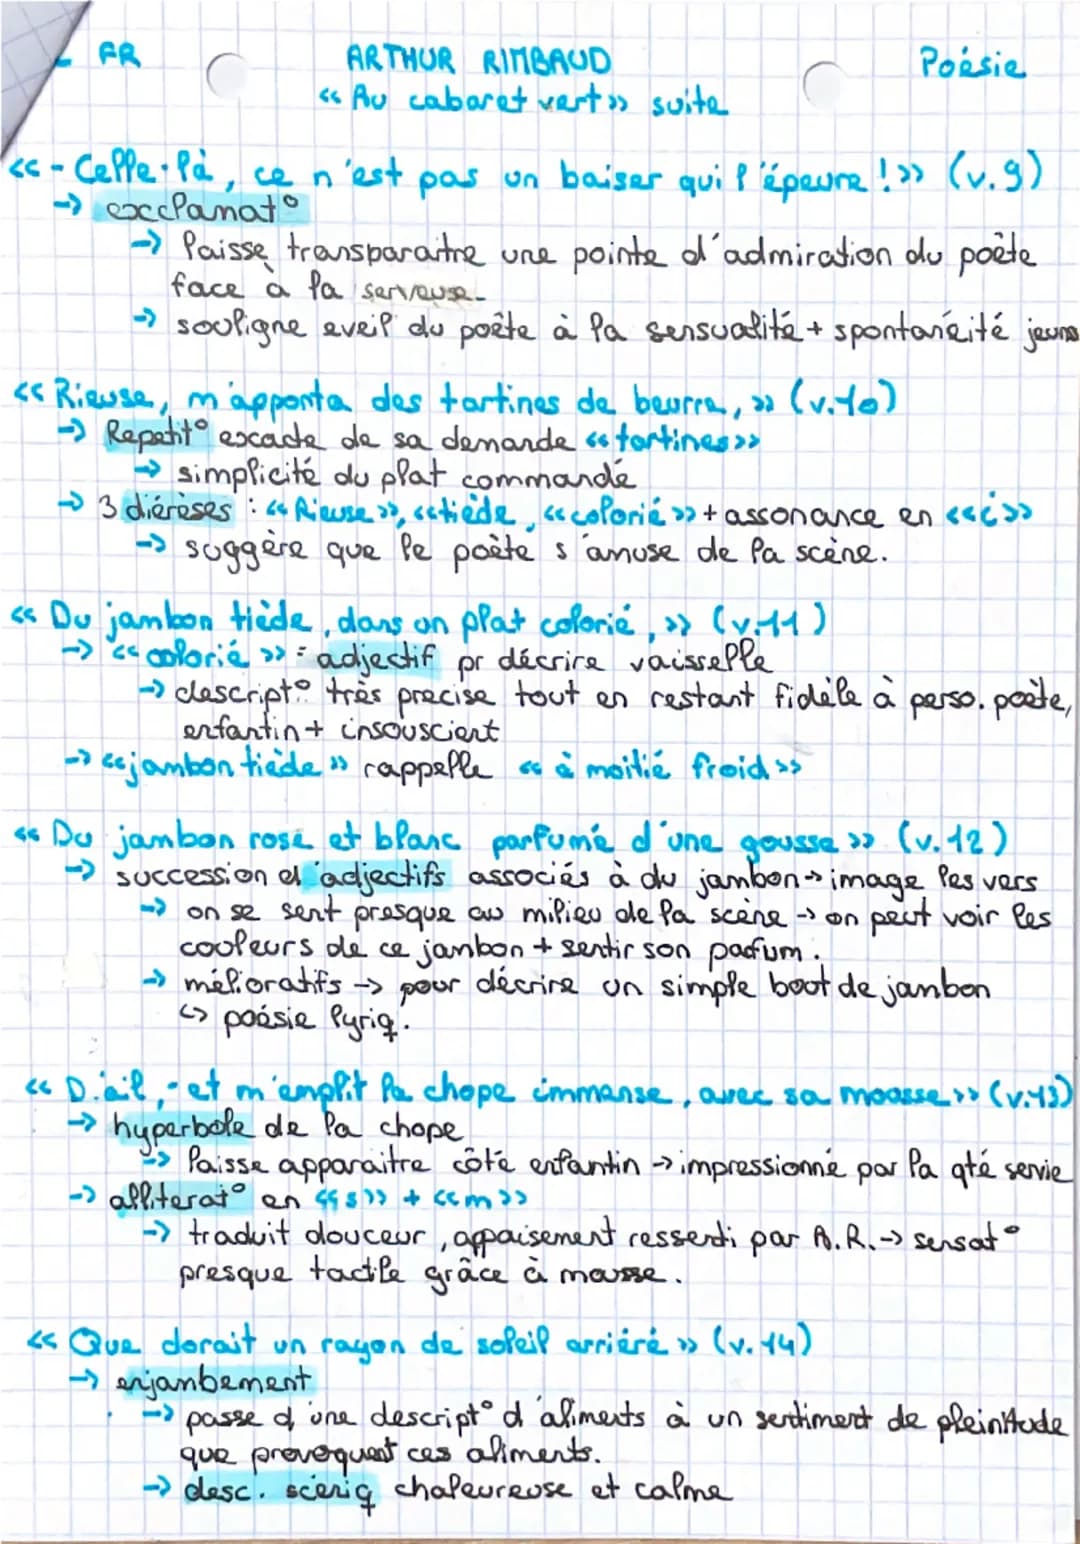 FR ARTHUR RIMBAUD Poésie
« Au cabaret vert » suite
« - Celle-là, ce n'est pas un baiser qui l'épeure ! » (v.9)
→ exclanat°
→ laisse transparaitre une pointe d'admiration du poète
face à la serveuse.
→ souligne eveil du poète à la sensualité + spontanéité jeune
« Rieuse, m'apporta des tartines de beurre, » (v.10)
→ Repetit° exacte de sa demande « tartines »
→ simplicité du plat commandé
→ 3 diérèses : « Rieuse », « tiède, « colorié » + assonance en « i »
→ suggère que le poète s'amuse de la scène.
« Du jambon tiède, dans un plat colorié, » (v.11)
→ « colorié » = adjectif pr décrire vaisselle
→ descript° très precise tout en restant fidèle à perso. poète,
enfantin + insousciant
→ « jambon tiède » rappelle « à moitié froid »
« Du jambon rose et blanc parfumé d'une gousse » (v.12)
→ succession d'adjectifs associés à du jambon → image les vers
→ on se sent presque au milieu de la scène → on peut voir les
couleurs de ce jambon + sentir son parfum.
→ mélioratifs → pour décrire un simple bout de jambon
↪ poésie lyriq.
« D'ail, - et m'emplit la chope immense, avec sa mousse » (v.13)
→ hyperbole de la chope
→ laisse apparaitre côté enfantin → impressionné par la qté servie
→ alliterat° en « s » + « m »
→ traduit douceur, appaisement ressenti par A.R. → sensat°
presque tactile grâce à mousse.
« Que dorait un rayon de soleil arriéré » (v.14)
→ enjambement
→ passe d'une descript° d'aliments à un sentiment de pleinitude
que provoquent ces aliments.
→ desc. scéniq chaleureuse et calme